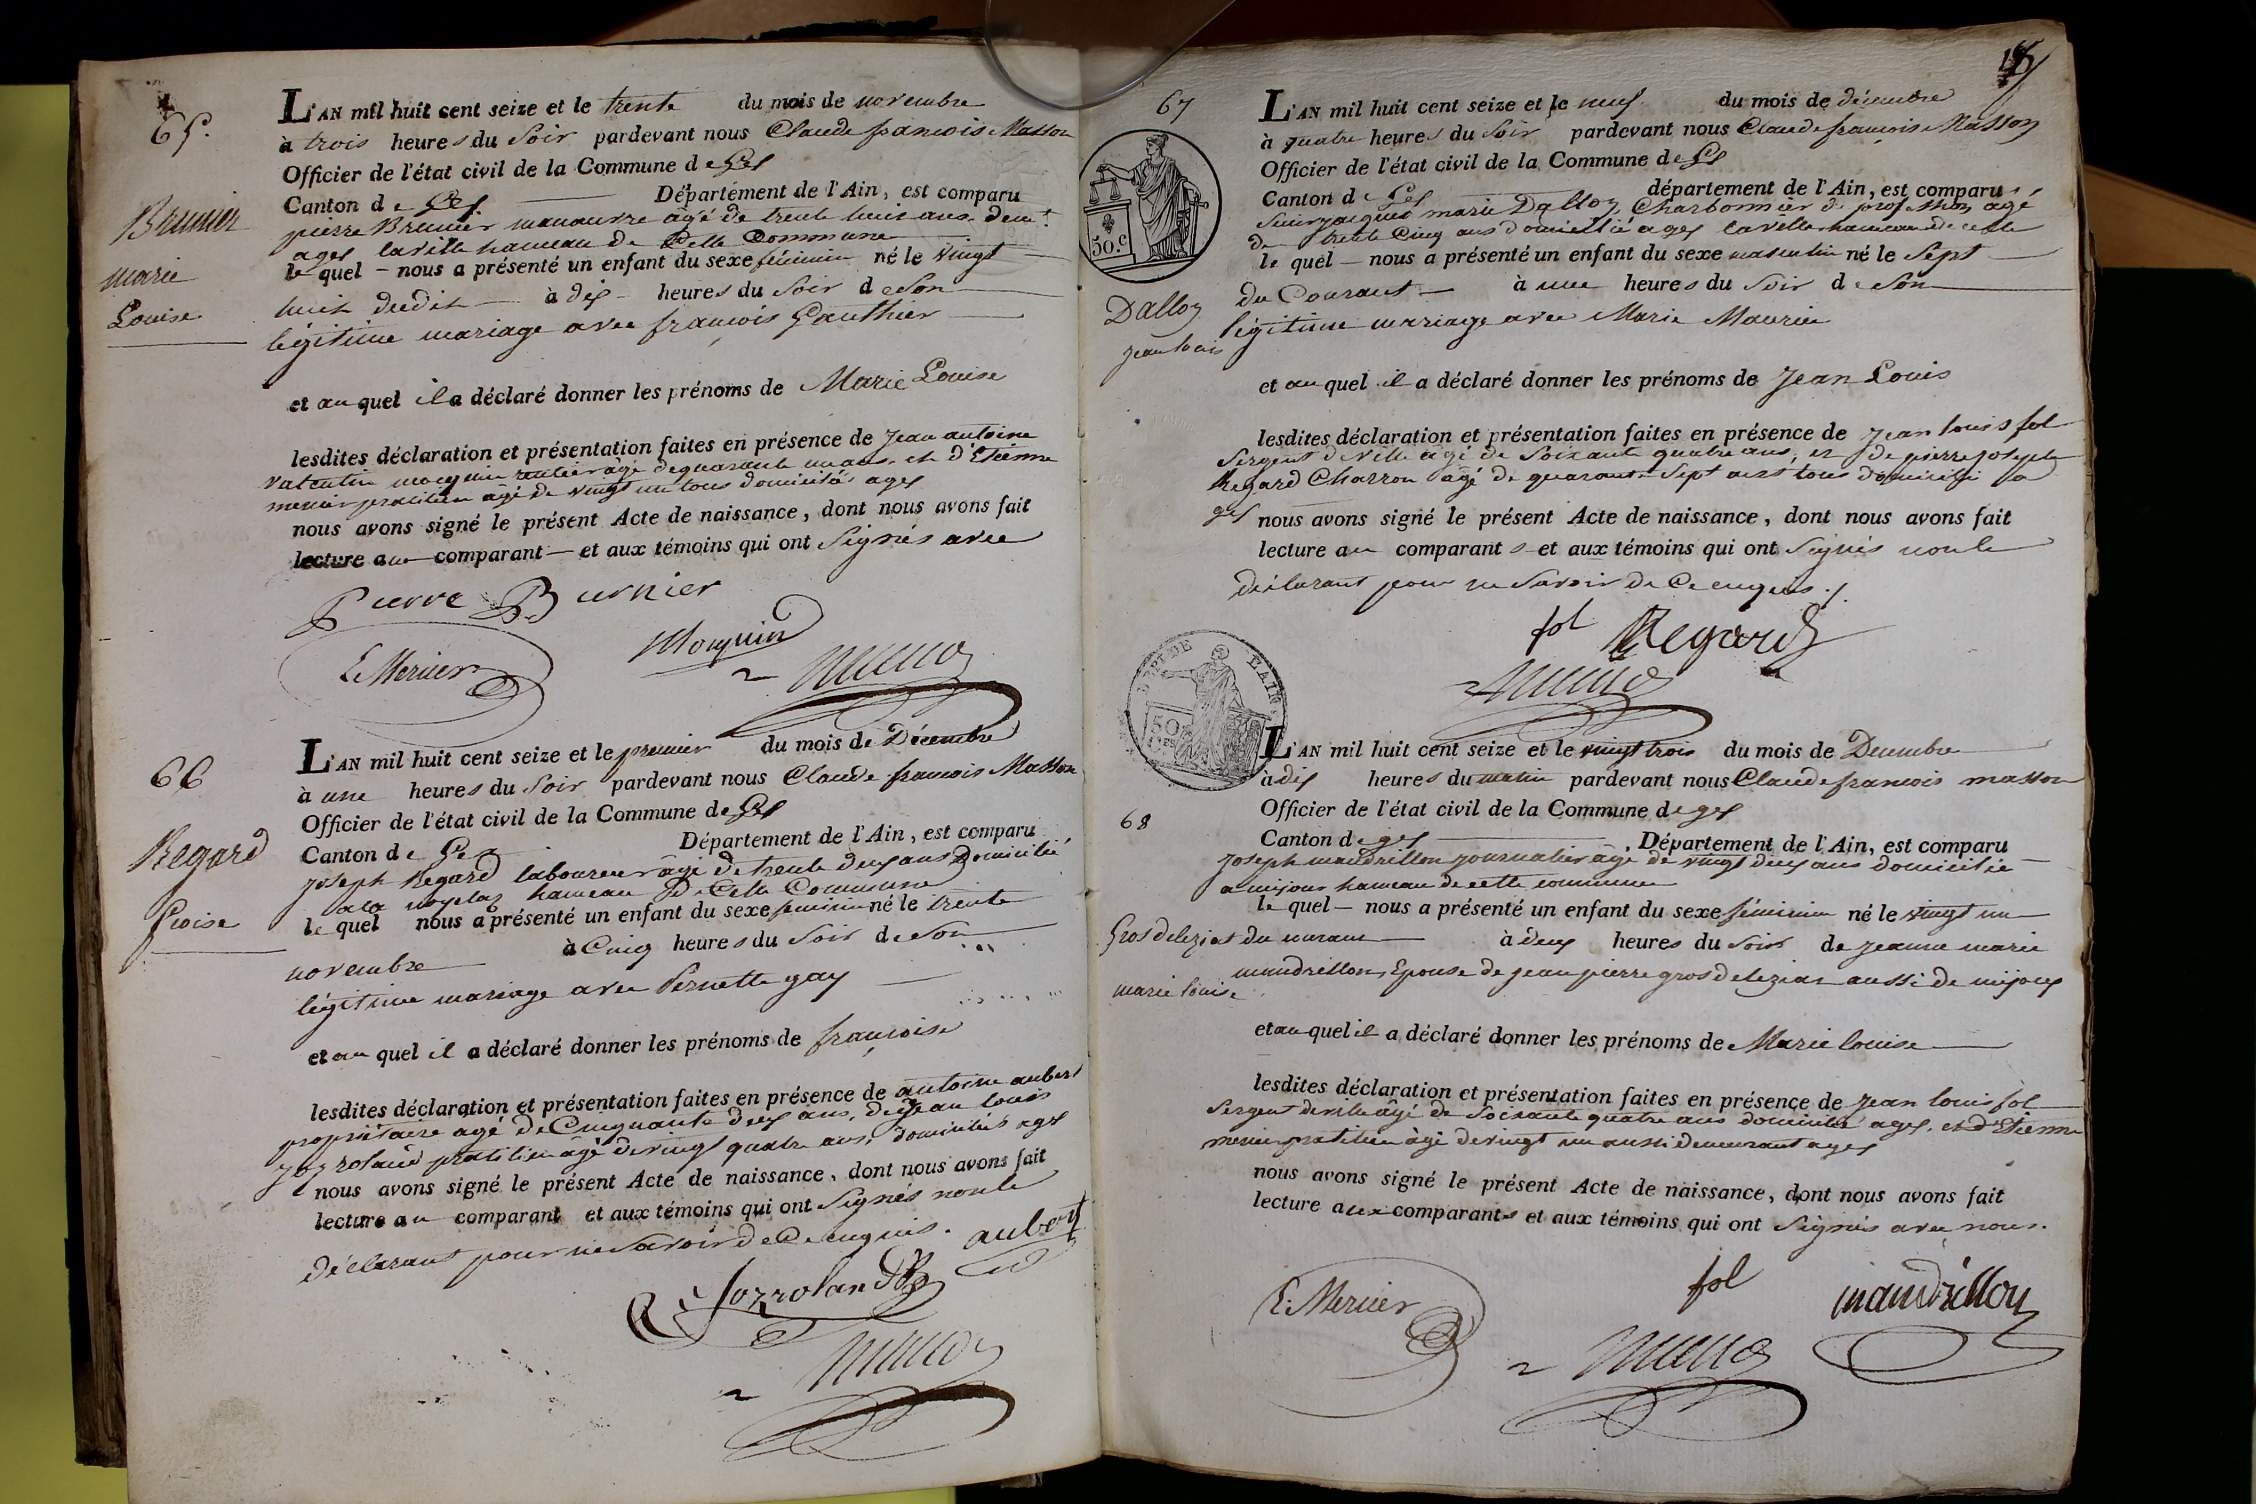 65.
Brunier
marie
Louise
L'AN mil huit cent seize et le trente du mois de novembre
à trois heures du Soir pardevant nous Claude françois Masson
Officier de l'état civil de la Commune de Gex
Canton de Gex Département de l'Ain, est comparu
pierre Brunier manouvre âgé de trente huit ans demt
a gex laville hameau de Cette Commune
le quel nous a présenté un enfant du sexe féminin né le vingt
huit dudit à dix heures du Soir de Son
légitime mariage avec françois Gauthier
et au quel il a déclaré donner les prénoms de Marie Louise
lesdites déclaration et présentation faites en présence de Jean antoine
valentin mouquin rentier âgé de quarante un ans, et d'Etienne
mercier pratitien âgé de vingt un tous domiciliés a gex
nous avons signé le présent Acte de naissance, dont nous avons fait
lecture au comparant et aux témoins qui ont Signés avec
Pierre Burnier
E Mercier
Mouquin
66
Regard
froise
L'AN mil huit cent seize et le premier du mois de Décembre
à une heures du Soir pardevant nous Claude françois Masson
Officier de l'état civil de la Commune de Gex
Canton de Gex Département de l'Ain, est comparu
Joseph Regard laboureur âgé de trente deux ans Domicilié
a la hameau de Cette Commune
le quel nous a présenté un enfant du sexe feminin né le trente
novembre à Cinq heures du Soir de Son
légitime mariage avec Pernette gay
et au quel il a déclaré donner les prénoms de françoise
lesdites déclaration et présentation faites en présence de antoine aubert
propriétaire âgé de Cinquante deux ans, de Jean louis
Jozroland pratitien âgé de vingt quatre ans, domiciliés a gex
nous avons signé le présent Acte de naissance, dont nous avons fait
lecture au comparant et aux témoins qui ont Signés non le
déclarant pour ne Savoir de Ce enquis.
aubert
Jozroland
67
50.c
Dalloz
jean louis
L'AN mil huit cent seize et le neuf du mois de décembre
à quatre heures du Soir pardevant nous Claude françois Masson
Officier de l'état civil de la Commune de Gex
Canton de Gex département de l'Ain, est comparu
jacques marie Dalloz, Charbonnier de profession âgé
de trente Cinq ans domicilié a gex laville hameau de cette
le quel nous a présenté un enfant du sexe masculin né le Sept
du Courant à une heures du Soir de Son
légitime mariage avec Marie Maurier
et au quel il a déclaré donner les prénoms de Jean Louis
lesdites déclaration et présentation faites en présence de Jean louis fol
Sergent de ville âgé de Soixante quatre ans, et de pierre joseph
Regard Charron âgé de quarante Sept ans tous domicilié a
gex nous avons signé le présent Acte de naissance, dont nous avons fait
lecture au comparant s et aux témoins qui ont Signés non le
déclarant pour ne Savoir de Ce enquis ./.
fol Regard
DEPT DE L'AIN
50 CES
68
Gros deleziat
marie louise
L'AN mil huit cent seize et le vingt trois du mois de Decembre
à dix heures du matin pardevant nous Claude françois masson
Officier de l'état civil de la Commune de gex
Canton de gex, Département de l'Ain, est comparu
Joseph maudrillon journalier âgé de vingt deux ans domicilié
a mijoux hameau de cette commune
le quel nous a présenté un enfant du sexe féminin né le vingt un
du courant à deux heures du Soir de jeanne marie
maudrillon, Epouse de jean pierre gros deleziat aussi de mijoux
et au quel il a déclaré donner les prénoms de Marie louise
lesdites déclaration et présentation faites en présence de Jean louis fol
Sergent de ville âgé de Soixante quatre ans domicilié a gex, et d'Etienne
mercier pratitien âgé de vingt un aussi demeurant a gex
nous avons signé le présent Acte de naissance, dont nous avons fait
lecture aux comparants et aux témoins qui ont Signés avec nous.
E. Mercier
fol
maudrillon